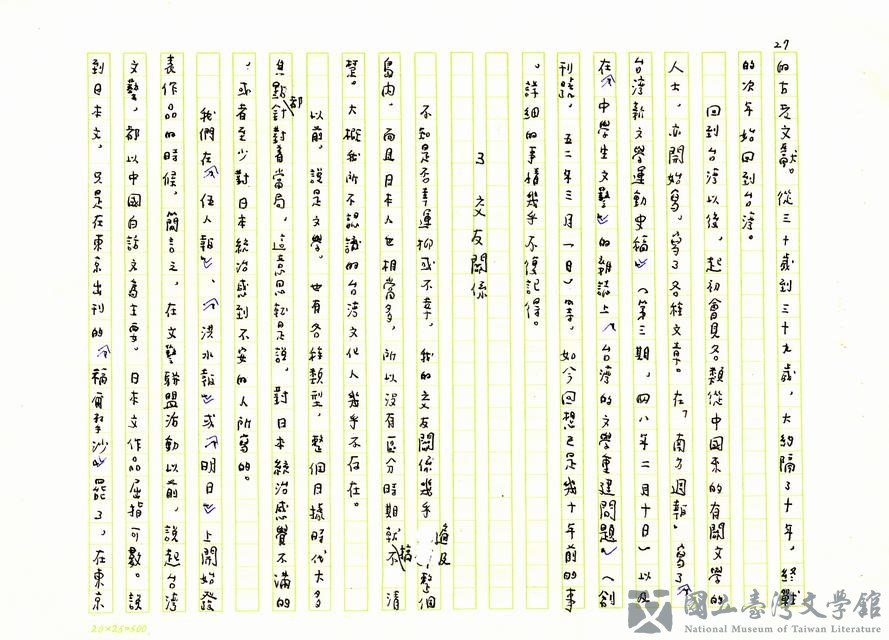 27
的古老文獻。從三十歲到三十九歲，大約隔了十年，終戰
的次年始回到台灣。
回到台灣以後，起初會見各類從中國來的有關文學的
人士，亦開始寫。寫了各種文章。在「南方週報」寫了《
台灣新文學運動史稿》（第三期，四八年二月十日）以及
在《中學生文藝》的雜誌上〈台灣的文學重建問題〉（創
刊號，五二年三月一日）等。如今回想已是幾十年前的事
。詳細的事情幾乎不復記得。
3 交友關係
不知是否幸運抑或不幸，我的交友關係幾乎遍及整個
島內，而且日本人也相當多，所以沒有區分時期就搞不清
楚。大概我所不認識的台灣文化人幾乎不存在。
以前，說是文學，也有各種類型，整個日據時代大多
焦點都針對着當局，這意思就是說，對日本統治感覺不滿的
，或者至少對日本統治感到不安的人所寫的。
我們在《伍人報》、《洪水報》或《明日》上開始發
表作品的時候，簡言之，在文藝聯盟活動以前，說起台灣
文藝，都以中國白話文為主要。日本文作品屈指可數。說
到日本文，只是在東京出刊的《福爾摩沙》罷了，在東京
20×25=500
國立臺灣文學館
National Museum of Taiwan Literature